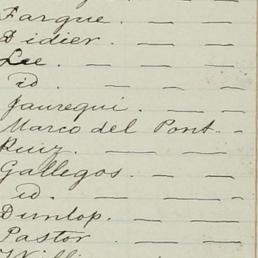 Fargue. — —
Didier. — — —
Lee — — —
id — — —
Jauregui. — — —
Marco del Pont. -
Ruiz. — —
Gallegos. — —
id. — — —
Dunlop. — — —
Pastor. — — —